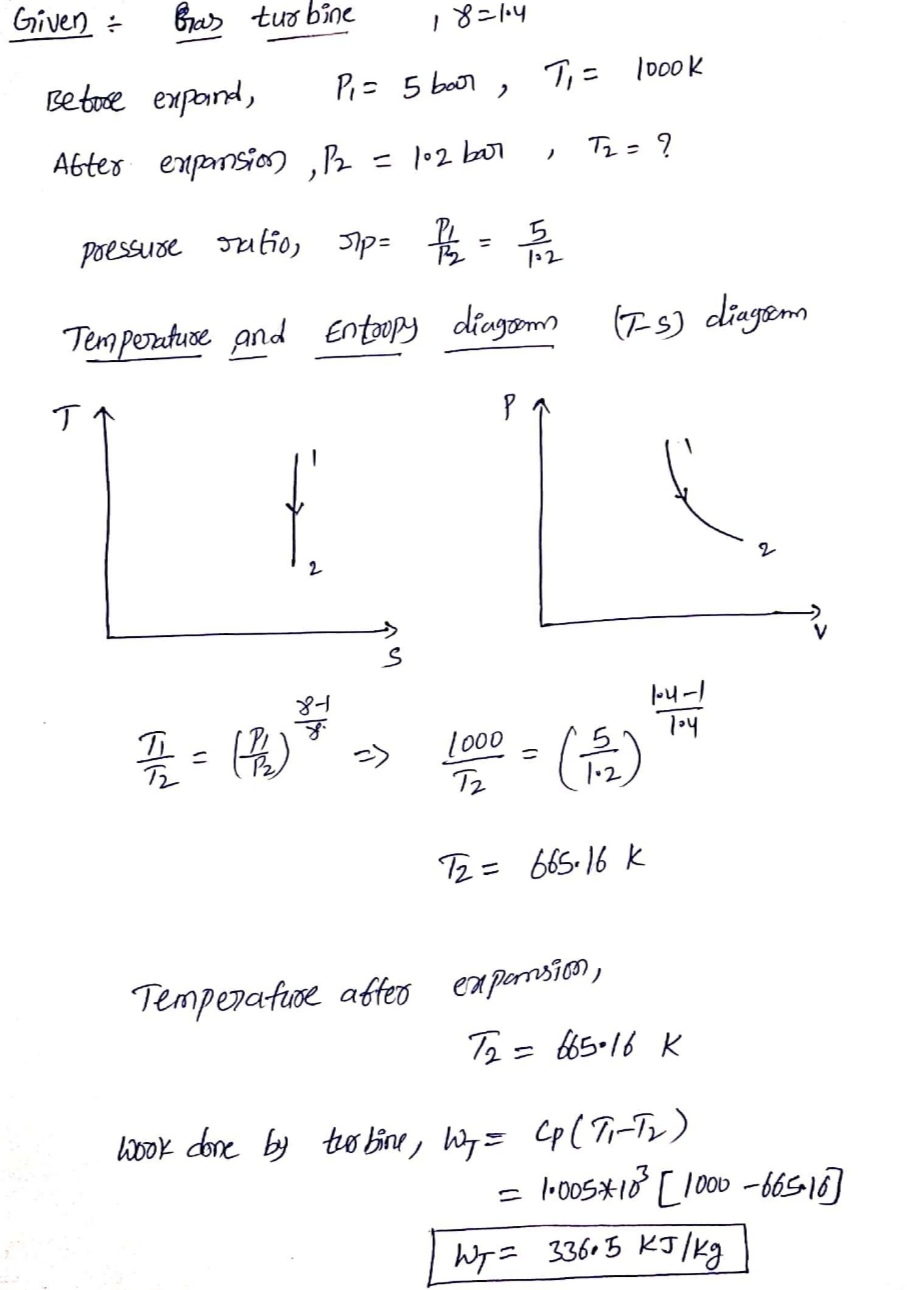 Given :- Gas turbine , γ=1.4
Before expand, P₁ = 5 bar , T₁ = 1000K
After expansion , P₂ = 1.2 bar , T₂ = ?
pressure ratio, rp = P₁/P₂ = 5/1.2
Temperature and Entropy diagram (T-S) diagram
T
1
2
S
P
1
2
V
T₁/T₂ = (P₁/P₂)^((γ-1)/γ) => 1000/T₂ = (5/1.2)^((1.4-1)/1.4)
T₂ = 665.16 K
Temperature after expansion,
T₂ = 665.16 K
Work done by turbine, W_T = Cp(T₁-T₂)
= 1.005*10³ [1000 - 665.16]
W_T = 336.5 KJ/kg